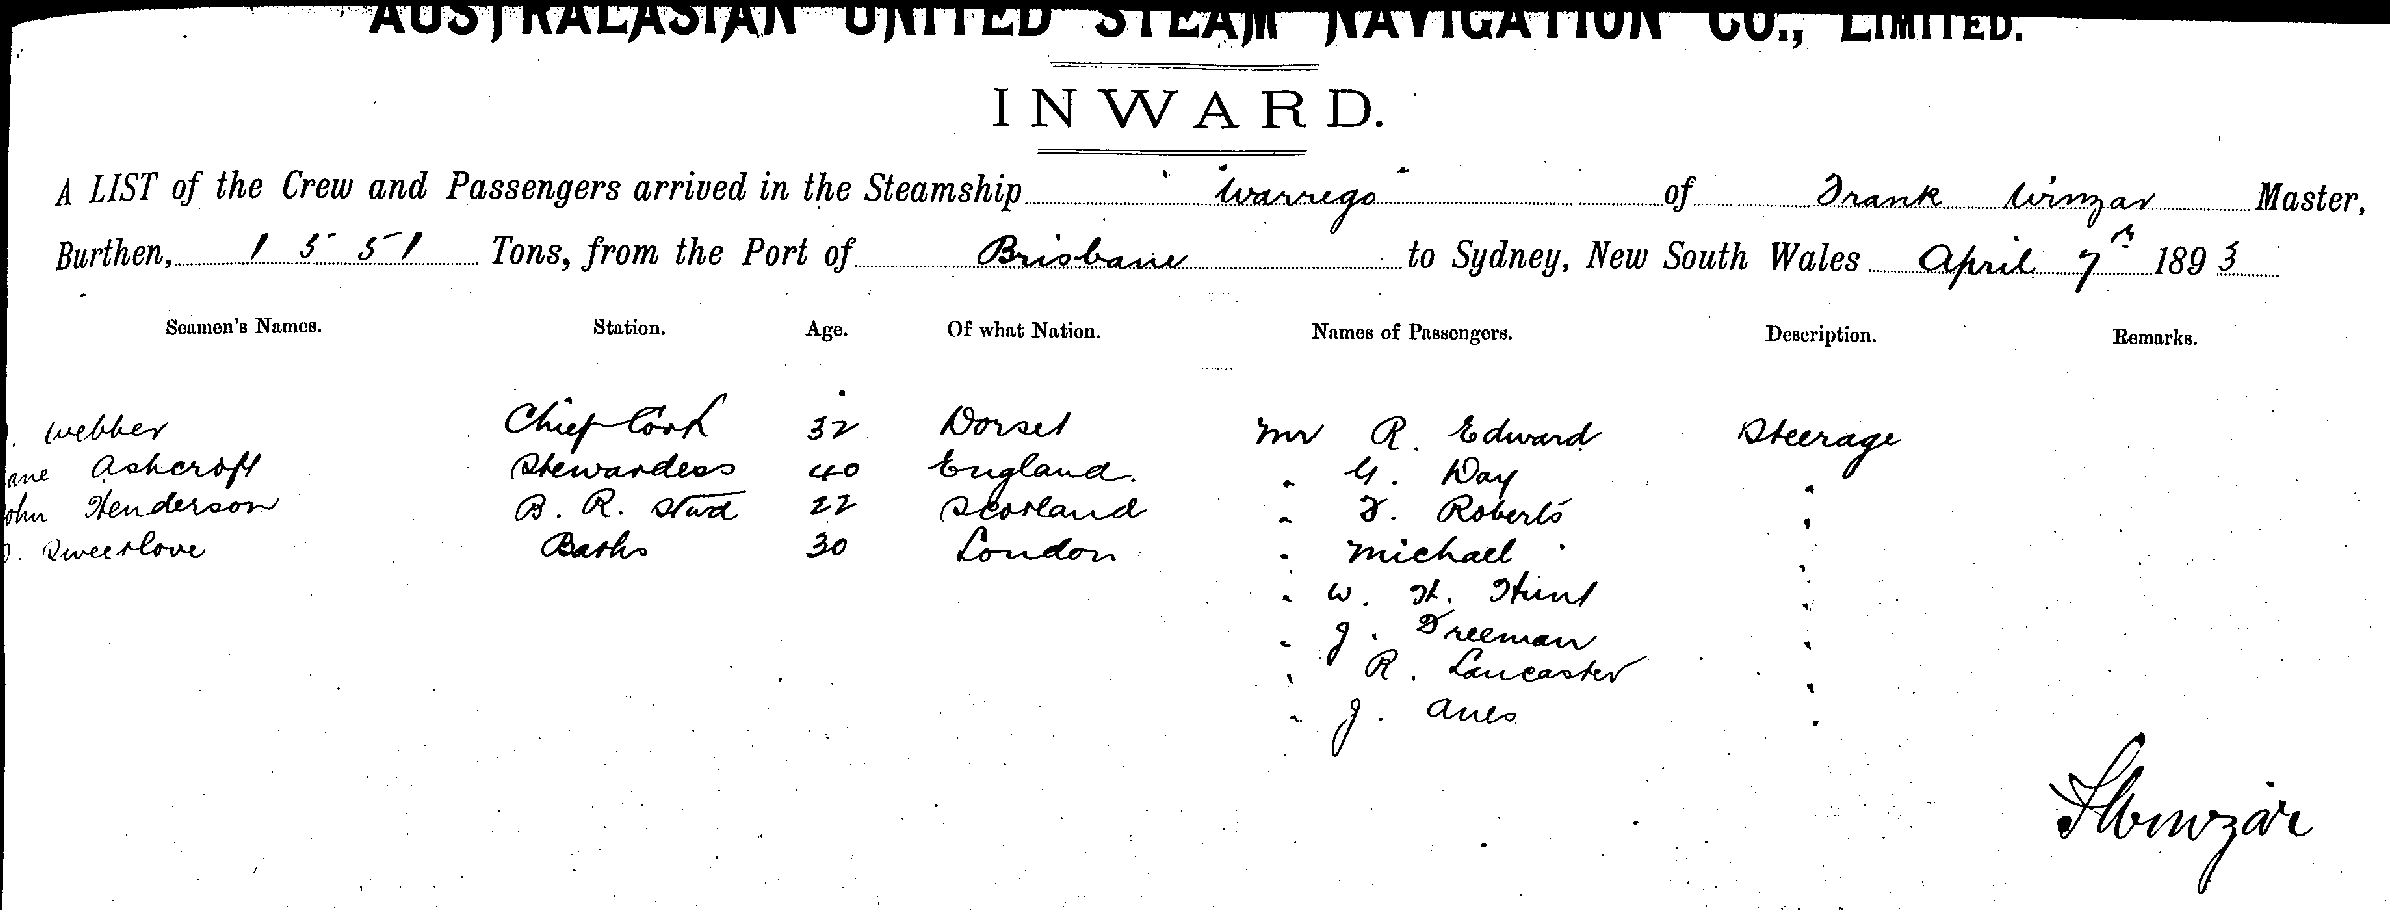 AUSTRALASIAN UNITED STEAM NAVIGATION CO., LIMITED.
INWARD.
A LIST of the Crew and Passengers arrived in the Steamship "Warrego" of Frank Winzar Master,
Burthen, 1551 Tons, from the Port of Brisbane to Sydney, New South Wales April 7th 1893
Seamen's Names. Station. Age. Of what Nation. Names of Passengers. Description. Remarks.
. Webber Chief Cook 32 Dorset Mr R. Edward Steerage
ane Ashcroft Stewardess 40 England " G. Day "
ohn Henderson B. R. Stwd 22 Scotland " F. Roberts "
. Sweetlove Baths 30 London " Michael "
" W. H. Hunt "
" J. Freeman "
" R. Lancaster "
" J. "
F Winzar